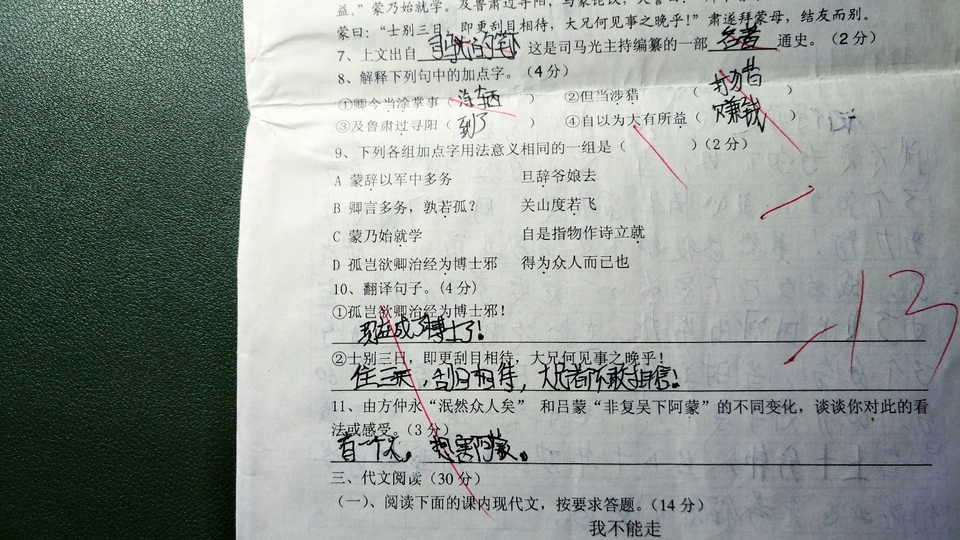 益。”蒙乃始就学。及鲁肃过寻阳，与蒙论议，大
蒙曰：“士别三日，即更刮目相待，大兄何见事之晚乎！”肃遂拜蒙母，结友而别。
7、上文出自 这是司马光主持编纂的一部 名著 通史。（2分）
8、解释下列句中的加点字。（4分）
①卿今当涂掌事（ 汽车 ） ②但当涉猎 （ 打猎 ）
③及鲁肃过寻阳（ 到了 ） ④自以为大有所益（ 赚钱 ）
9、下列各组加点字用法意义相同的一组是（ ）（2分）
A 蒙辞以军中多务 旦辞爷娘去
B 卿言多务，孰若孤？ 关山度若飞
C 蒙乃始就学 自是指物作诗立就
D 孤岂欲卿治经为博士邪 得为众人而已也
10、翻译句子。（4分）
①孤岂欲卿治经为博士邪！
现在成了博士了！
②士别三日，即更刮目相待，大兄何见事之晚乎！
住三天，刮目相待，大兄都不敢相信！
11、由方仲永“泯然众人矣” 和吕蒙“非复吴下阿蒙”的不同变化，谈谈你对此的看
法或感受。（3分）
有一个人。想害阿蒙。
三、代文阅读（30分）
（一）、阅读下面的课内现代文，按要求答题。（14分）
我不能走
-13